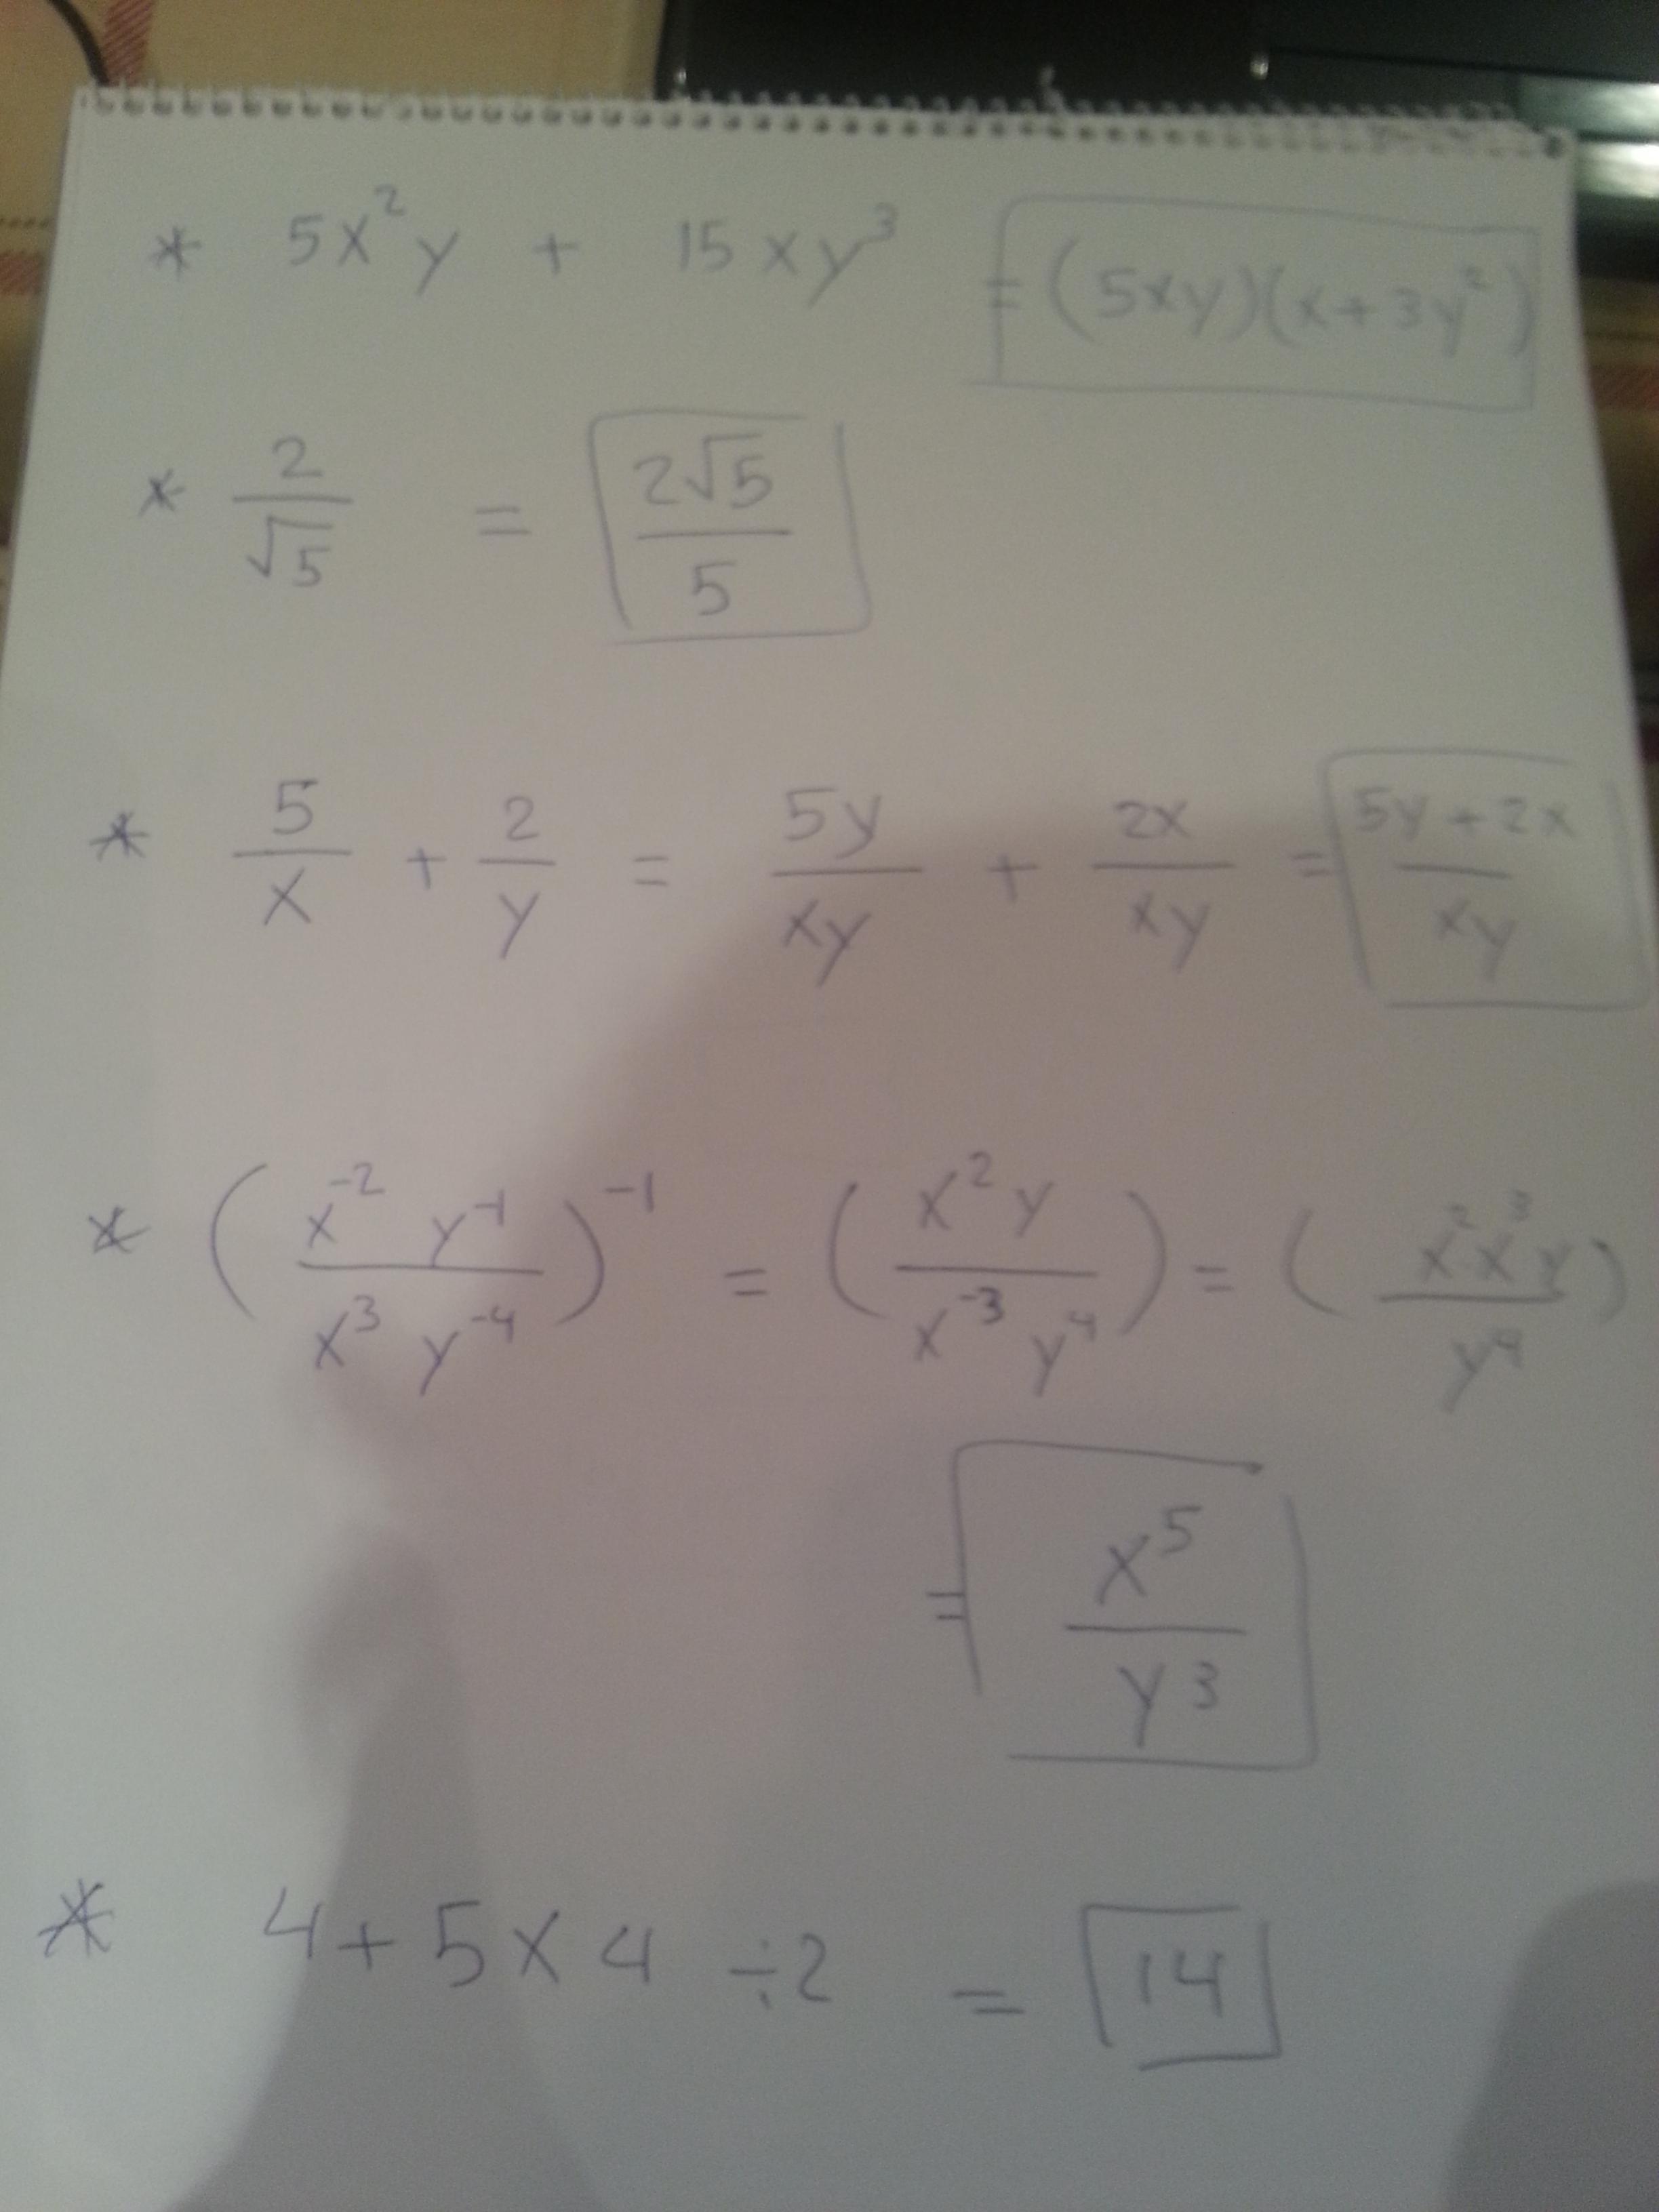 * 5x²y + 15xy³ = (5xy)(x+3y²)
* 2/√5 = 2√5/5
* 5/x + 2/y = 5y/xy + 2x/xy = 5y+2x/xy
* (x⁻² y⁻¹ / x³ y⁻⁴)⁻¹ = (x² y / x⁻³ y⁴) = (x² x³ y / y⁴)
= x⁵/y³
* 4+5x4 ÷2 = 14